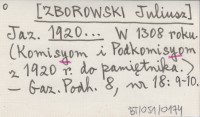 [ZBOROWSKI Juliusz]
Jaz. 1920... W 1308 roku
(Komisyom i Podkomisyom
z 1920 r. do pamiętnika.)
— Gaz. Podh. 8, nr 18: 9-10.
BT/051/0194